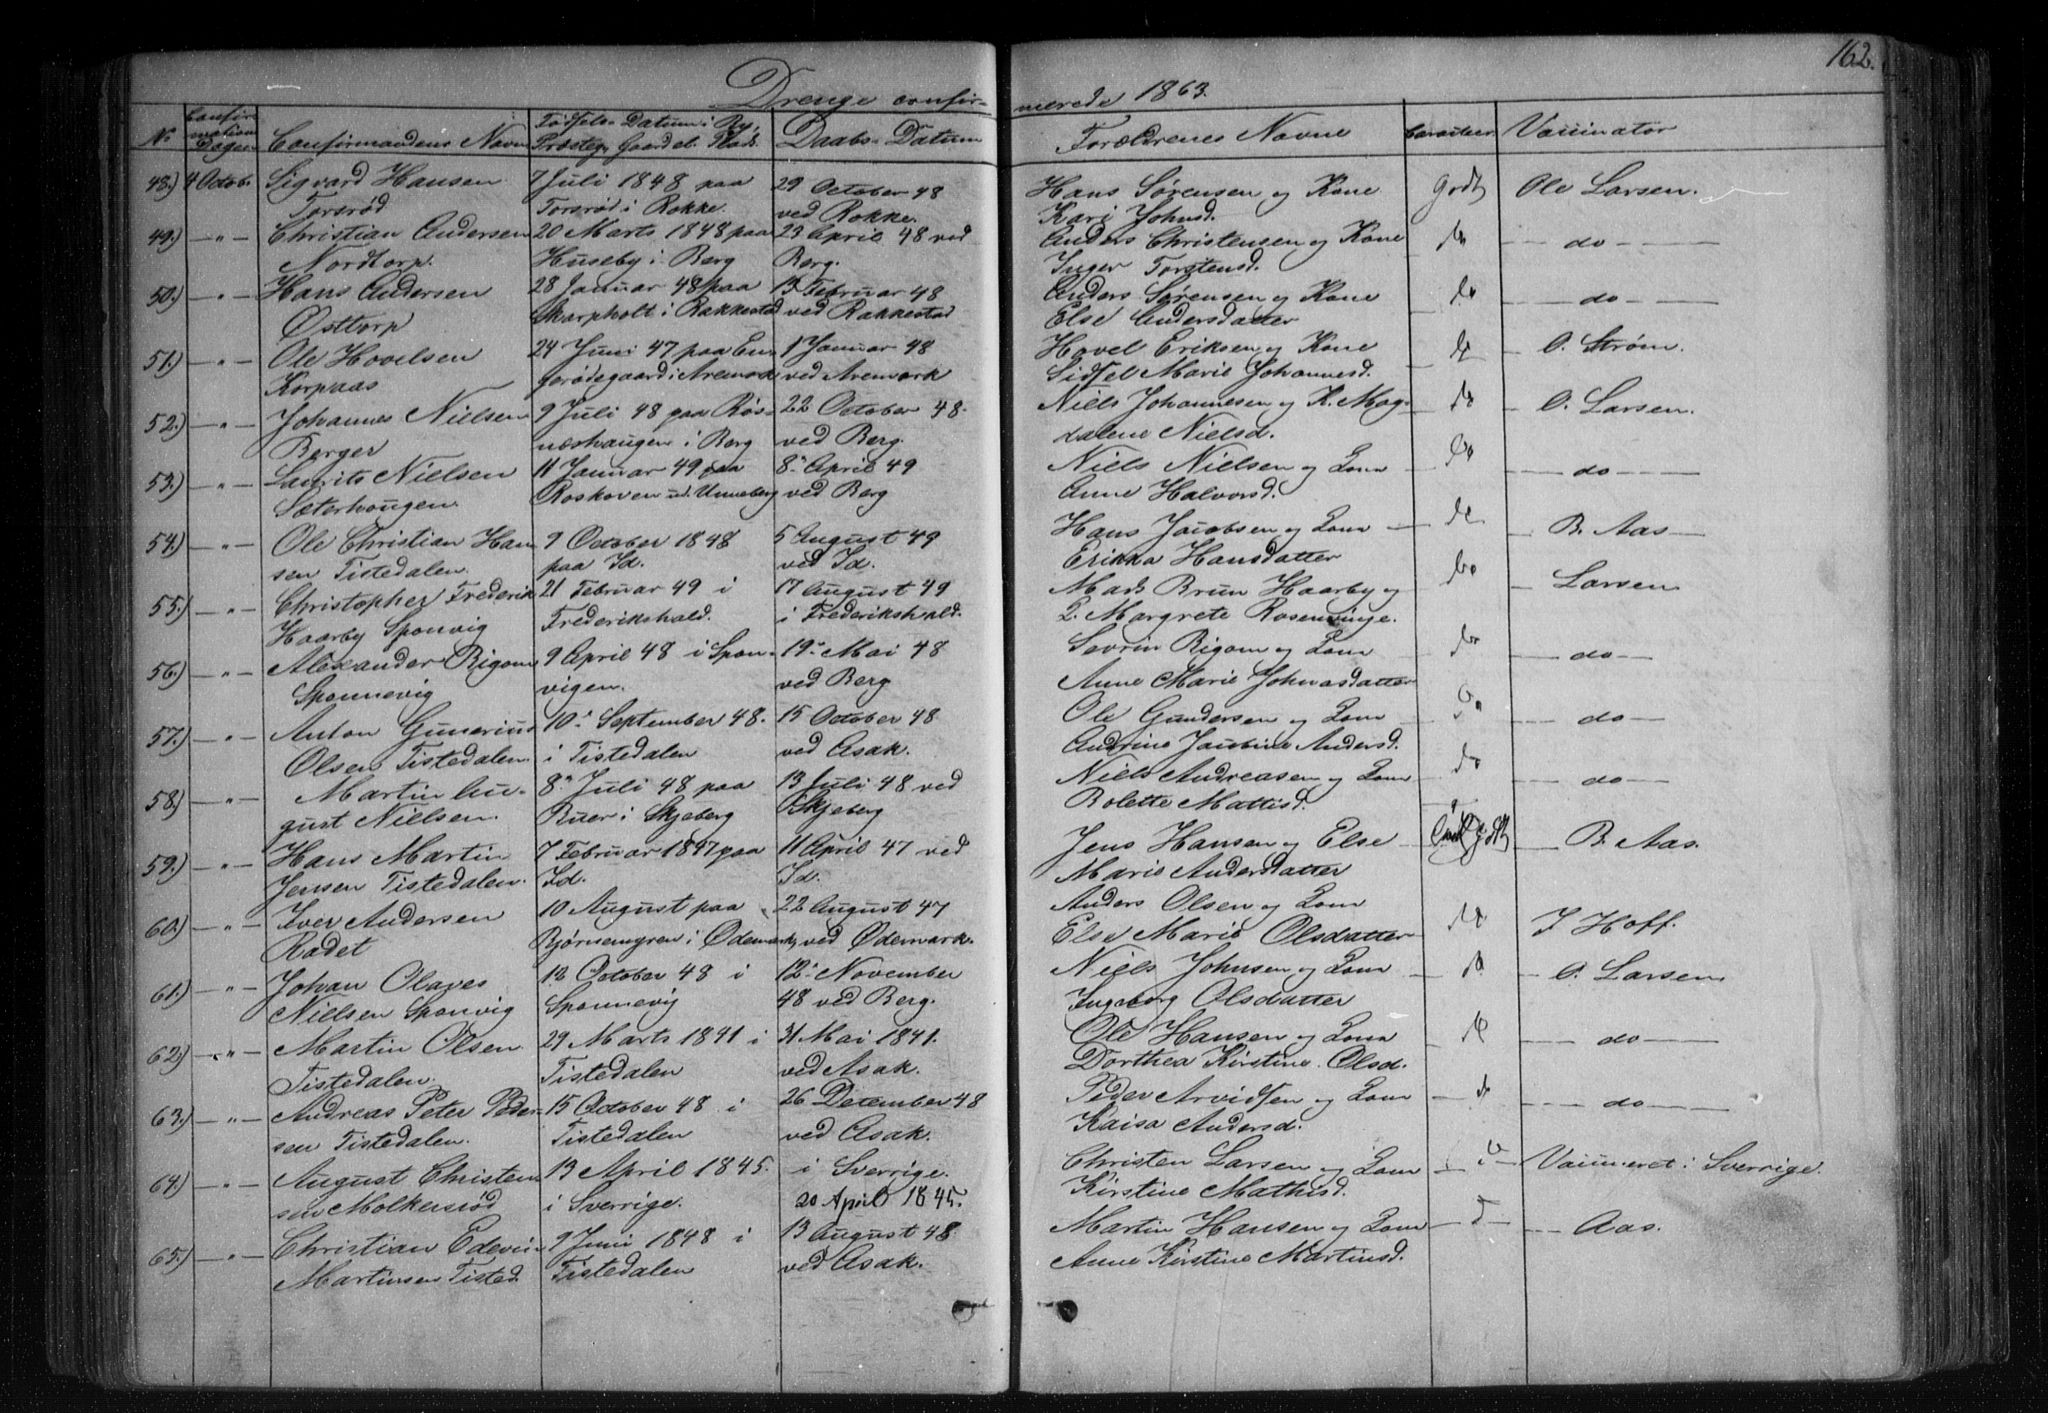 162.
Drenge confirmerede 1863.
No Confirmations Dagen Confirmandens Navn Fødsels-Datum i By, Præsteg. Gaard el. Plads. Daabs-Datum Forældrenes Navne Caracteer Vaccinator
48.) 4 Octob. Sigvard Hansen 7 Juli 1848 paa 29 October 48 Hans Sørensen og Kone Godt Ole Larsen.
Torsrød Torsrød i Rokke. ved Rokke. Kari Johnsd.
49.) — " — Christian Andersen 20 Marts 1848 paa 23 April 48 ved Anders Christensen og Kone do — do —
Nordtorp. Huseby i Berg Berg. Inger Torstensd.
50.) — " — Hans Andersen 28 Januar 48 paa 13 Februar 48 Anders Sørensen og Kone do — do —
Østtorp Skarpholt i Rakkestad ved Rakkestad Else Andersdatter
51.) — " — Ole Hovelsen 24 Juni 47 paa En- 1 Januar 48 Hovel Eriksen og Kone do — O. Strøm.
Korpaas gerødegaard i Aremark ved Aremark Sidsel Marie Johannesd.
52.) — " — Johannes Nielsen 9 Juli 48 paa Røs- 22 October 48. Niels Johannesen og K. Mag- do — O. Larsen.
Berger næshaugen i Berg ved Berg. dalene Nielsd.
53.) — " — Laurits Nielsen 11 Januar 49 paa 8. April 49 Niels Nielsen og Kone do — do —
Sæterhaugen. Roskoven ud. Unneberg ved Berg Anne Halvorsd.
54.) — " — Ole Christian Han- 9 October 1848 5 August 49 Hans Jacobsen og Kone — do — B. Aas —
sen Tistedalen. paa Id. ved Id. Erikka Hansdatter
55.) — " — Christopher Frederik 21 Februar 49 i 17 August 49 Mads Brun Haarby og do — Larsen
Haarby Sponvig Frederikshald. i Frederikshald. K. Margrete Rosenvinge.
56.) — " — Alexander Rigom 9 April 48 i Spon- 19. Mai 48 Sevrin Rigom og Kone do — do —
Sponnevig vigen. ved Berg Anne Marie Johnasdatter
57.) — " — Anton Gunerius 10. September 48. 15 October 48 Ole Gundersen og Kone do — do —
Olsen Tistedalen. i Tistedalen ved Asak. Andrine Jacobine Andersd.
58.) — " — Martin Au- 8. Juli 48 paa 13 Juli 48 ved Niels Andreasen og Kone do — do —
gust Nielsen. Buer i Skjeberg Skjeberg Bolette Mattisd.
59.) — " — Hans Martin 7 Februar 1847 paa 11 April 47 ved Jens Hansen og Else Godt — B. Aas.
Jensen Tistedalen. Id. Id. Marie Andersdatter
60.) — " — Iver Andersen 10 August paa 22 August 47 Anders Olsen og Kone do J Hoff.
Rødet Bjørnemyren i Ødemark, ved Ødemark. Else Marie Olsdatter
61.) — " — Johan Olaves 12 October 48 i 12. November Niels Johnsen og Kone — do — O. Larsen
Nielsen Sponvig Sponnevig 48 ved Berg. Ingeborg Olsdatter
62.) — " — Martin Olsen 29 Marts 1841 i 31 Mai 1841. Ole Hansen og Kone do — do —
Tistedalen. Tistedalen ved Asak. Dorthea Kirstine Olsd.
63.) — " — Andreas Peter Peder- 15 October 48 i 26 December 48 Peder Arvidsen og Kone — do — do —
sen Tistedalen. Tistedalen ved Asak. Kaisa Andersd.
64.) — " — August Christen- 13 April 1845. i Sverrige. Christen Larsen og Kone — do — Vaccineret i Sverrige.
sen Molkersrød i Sverrige. 20 April 1845. Kirstine Mathisd.
65.) — " — Christian Edevin 9 Juni 1848 i 13 August 48 Martin Hansen og Kone — do — Aas.
Martinsen Tisted. Tistedalen ved Asak. Anne Kirstine Martinsd.